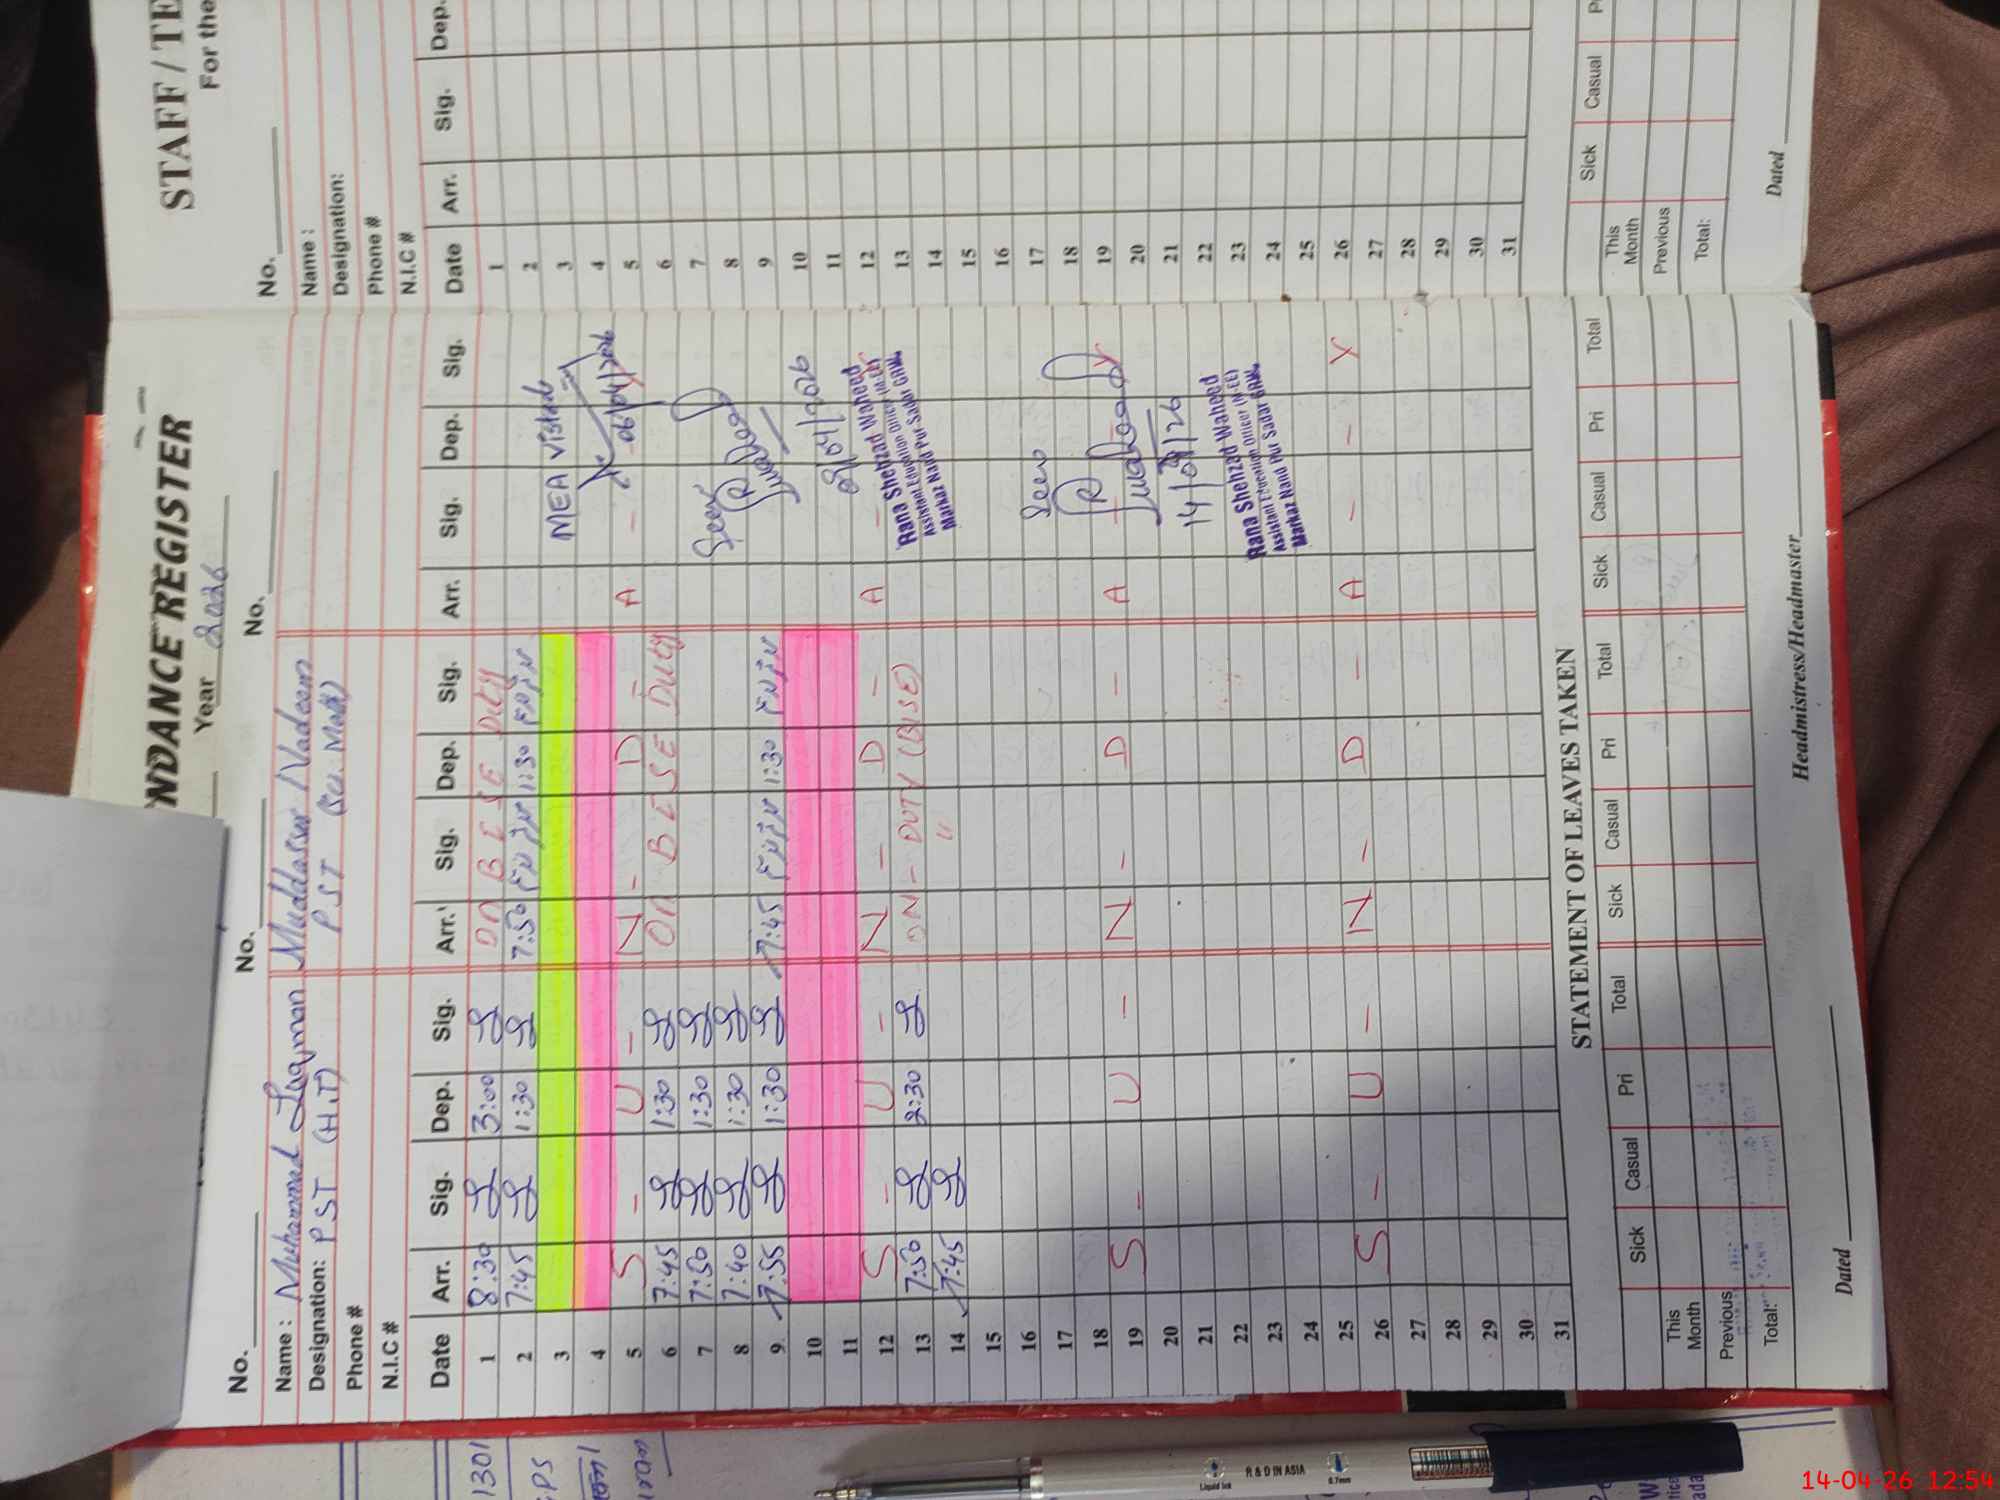 NDANCE REGISTER
Year 2026
No. No. No.
Name : Muhammad Luqman Muddassar Nadeem
Designation: PST (H.T) PST (Sci. Math)
Phone #
N.I.C #
Date Arr. Sig. Dep. Sig. Arr. Sig. Dep. Sig. Arr. Sig. Dep. Sig.
1 8:30 3:00 On BISE Duty
2 7:45 1:30 7:50 1:30
3 MEA visited
4 06/04/2026
5 S - U - N - D - A - - Y
6 7:45 1:30 On BISE Duty
7 7:50 1:30 Seen
8 7:40 1:30
9 7:55 1:30 7:45 1:30
10
11 09/04/2026
12 S - U - N - D - A - - Y
Rana Shehzad Waheed
Assistant Education Officer (M-EE)
Markaz Nand Pur Sadar GRW.
13 7:50 2:30 ON - DUTY (BISE)
14 7:45 "
15
16
17 Seen
18
19 S - U - N - D - A - - Y
20
21 14/04/26
22
Rana Shehzad Waheed
Assistant Education Officer (M-EE)
Markaz Nand Pur Sadar GRW.
23
24
25
26 S - U - N - D - A - - Y
27
28
29
30
31
STATEMENT OF LEAVES TAKEN
Sick Casual Pri Total Sick Casual Pri Total Sick Casual Pri Total
This Month
Previous
Total:
Dated Headmistress/Headmaster
STAFF / TE
For the
No.
Name :
Designation:
Phone #
N.I.C #
Date Arr. Sig. Dep.
1
2
3
4
5
6
7
8
9
10
11
12
13
14
15
16
17
18
19
20
21
22
23
24
25
26
27
28
29
30
31
Sick Casual P
This Month
Previous
Total:
Dated
1301
Liquid Ink R & D IN ASIA 0.7mm
14-04-26 12:54